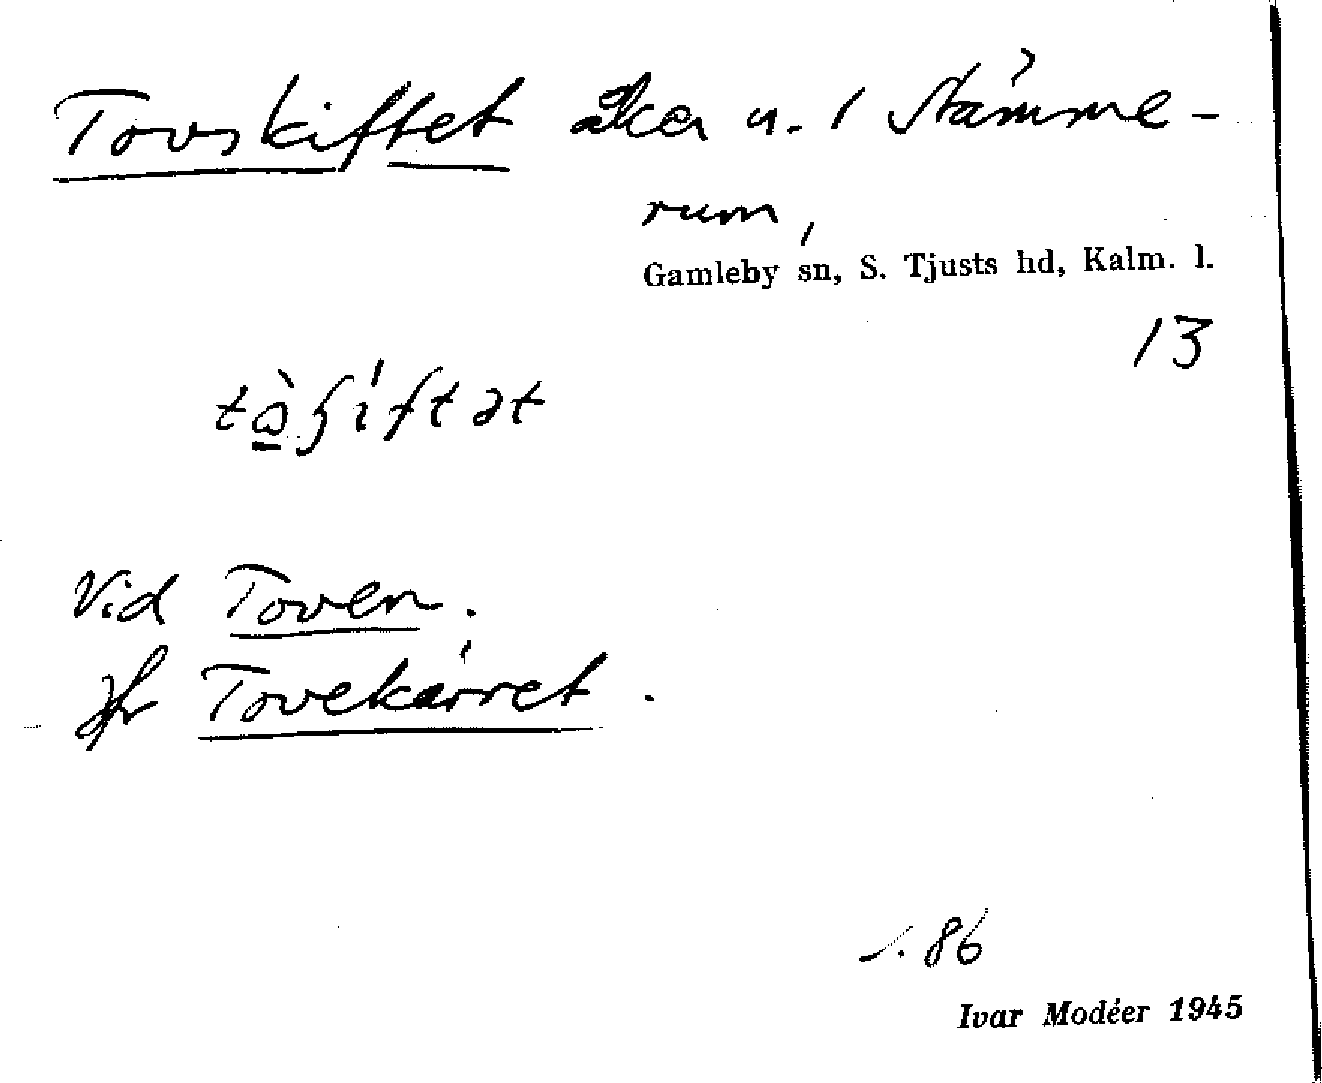 Tovskiftet åker u. / Stämme-
rum,
Gamleby sn, S. Tjusts hd, Kalm. l.
13
Vid Toven.
Jfr Tovekärret.
s. 86
Ivar Modéer 1945